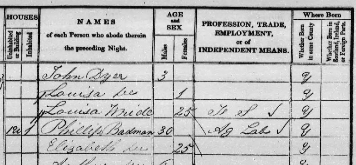 HOUSES
Uninhabited or Building
Inhabited
NAMES
of each Person who abode therein the preceding Night.
AGE and SEX
Males
Females
PROFESSION, TRADE, EMPLOYMENT, or of INDEPENDENT MEANS.
Where Born
Whether Born in same County
Whether Born in Scotland, Ireland, or Foreign Parts.
John Dyer 3 y
Louisa do 1 y
Louisa 25 F S y
1 Phillip Badman 30 Ag Lab y
Elizabeth do 25 y